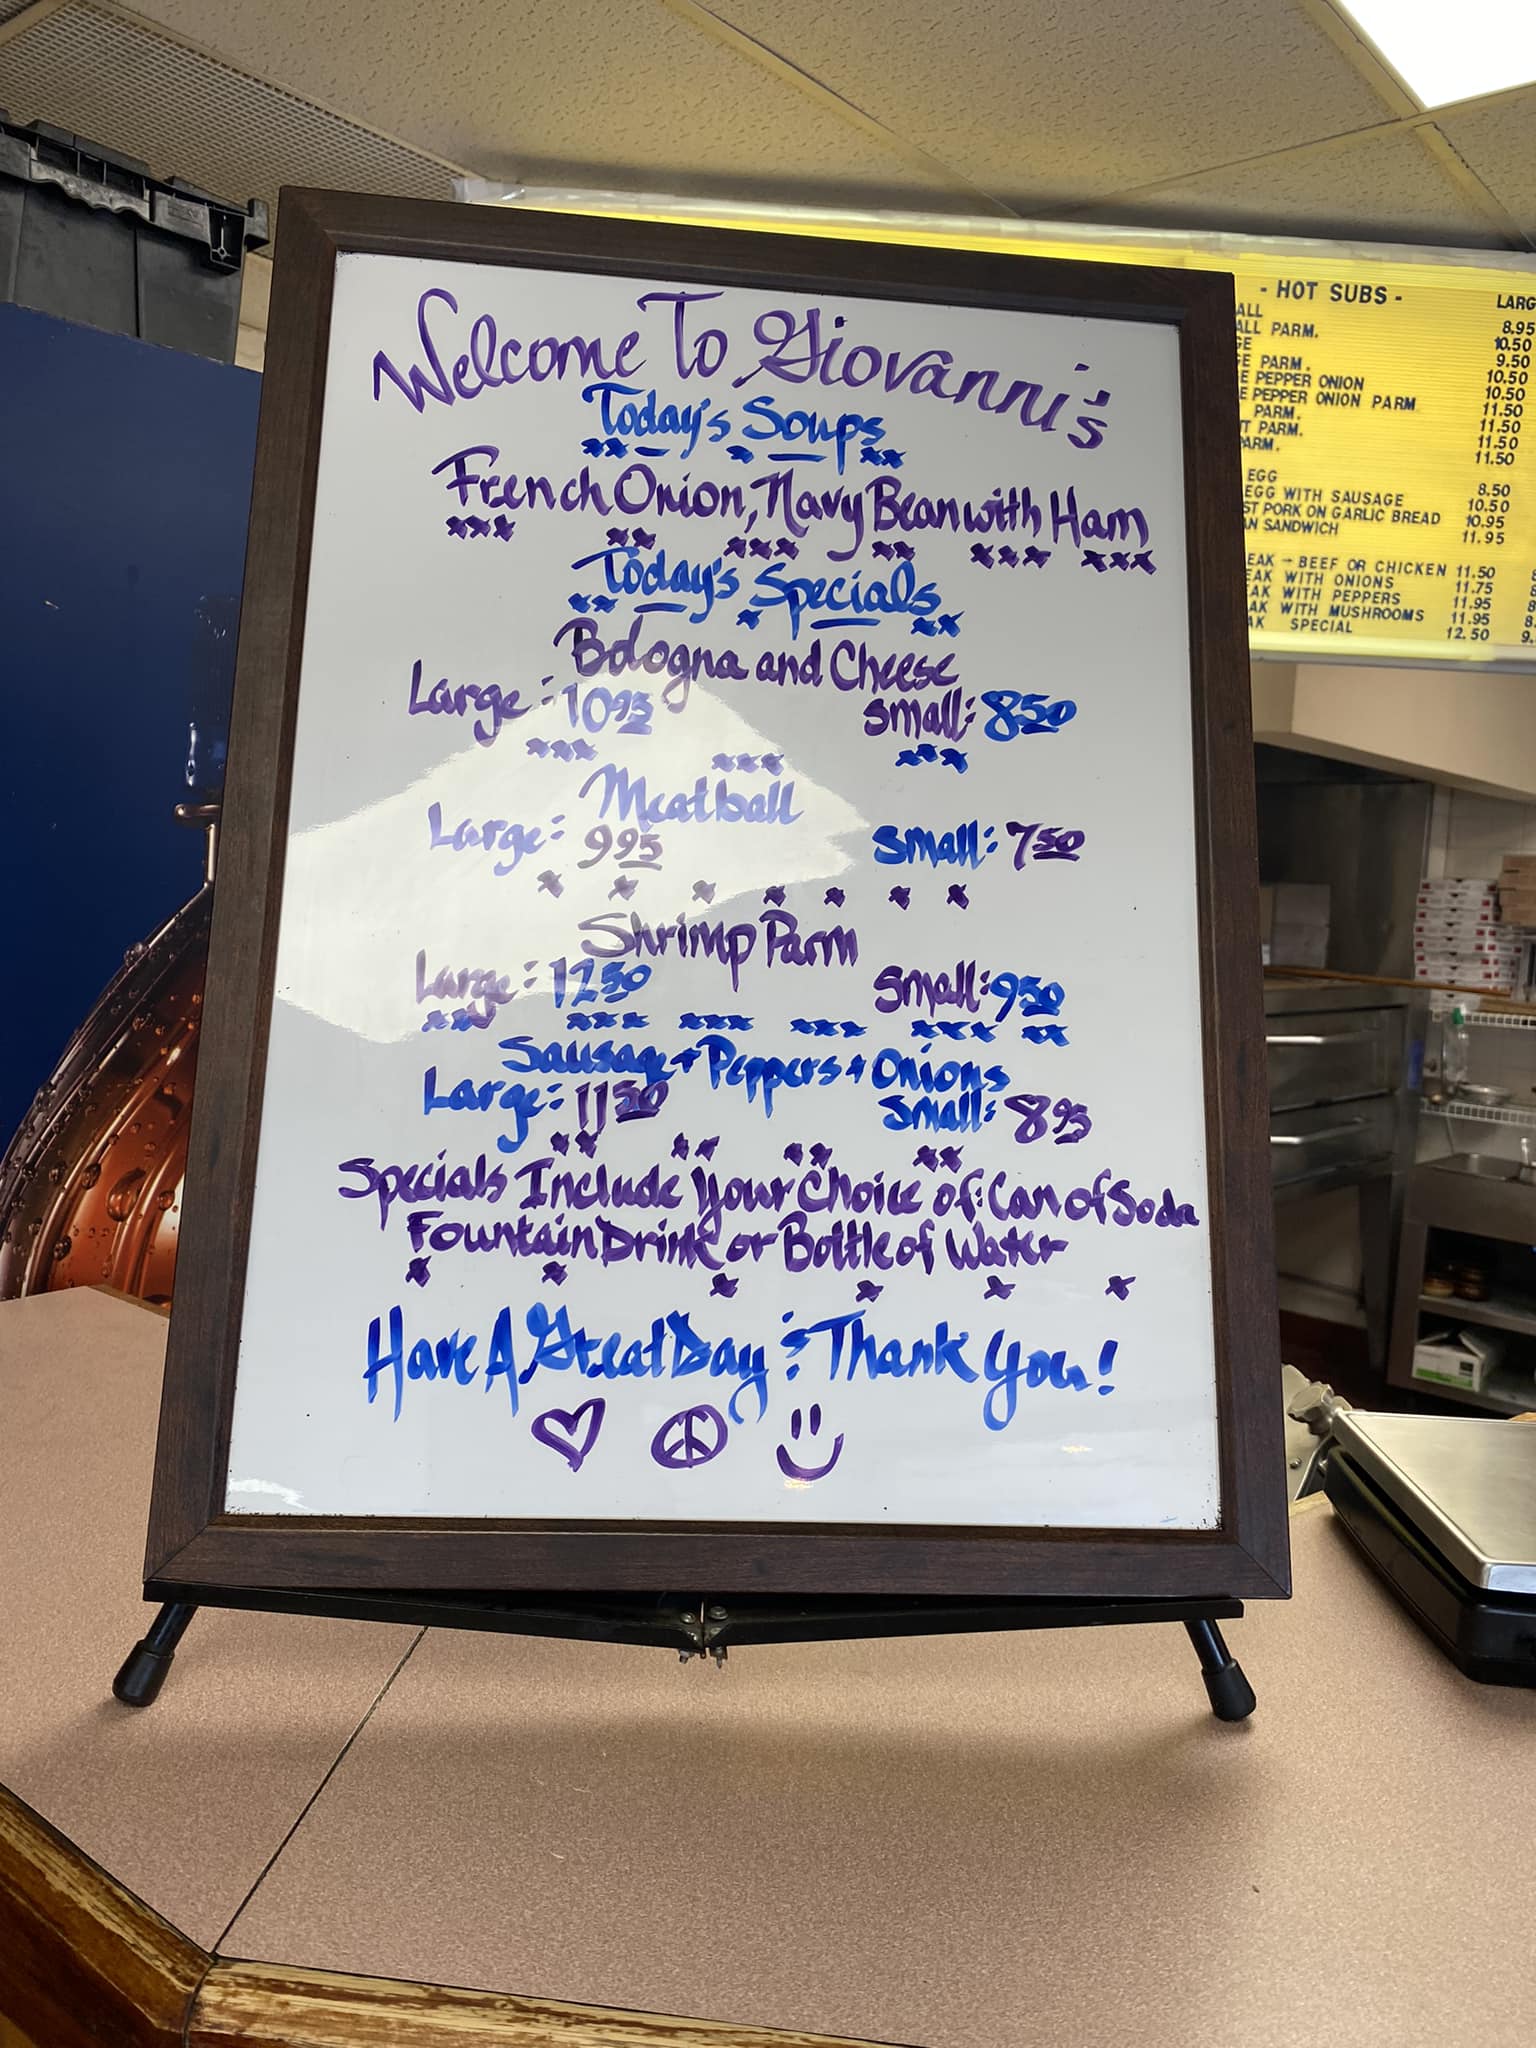 Welcome To Giovanni's
Today's Soups
French Onion, Navy Bean with Ham
Today's Specials
Bologna and Cheese
Large: 10.95 Small: 8.50
Meatball
Large: 9.95 Small: 7.50
Shrimp Parm
Large: 12.50 Small: 9.50
Sausage + Peppers + Onions
Large: 11.50 Small: 8.95
Specials Include Your Choice of: Can of Soda
Fountain Drink or Bottle of Water
Have A Great Day & Thank You!
- HOT SUBS - LARG
ALL 8.95
ALL PARM. 10.50
GE 9.50
GE PARM. 10.50
E PEPPER ONION 10.50
E PEPPER ONION PARM 11.50
PARM. 11.50
T PARM. 11.50
PARM. 11.50
EGG 8.50
EGG WITH SAUSAGE 10.50
ST PORK ON GARLIC BREAD 10.95
AN SANDWICH 11.95
EAK - BEEF OR CHICKEN 11.50
EAK WITH ONIONS 11.75
EAK WITH PEPPERS 11.95
AK WITH MUSHROOMS 11.95
AK SPECIAL 12.50 9.